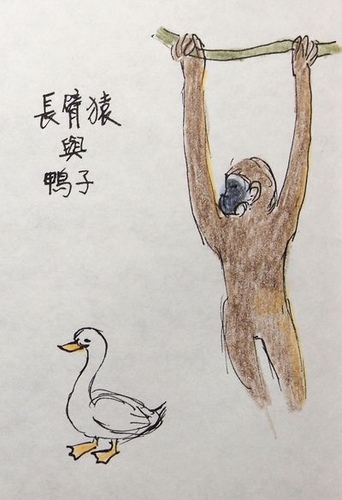 長臂猿
與
鴨子